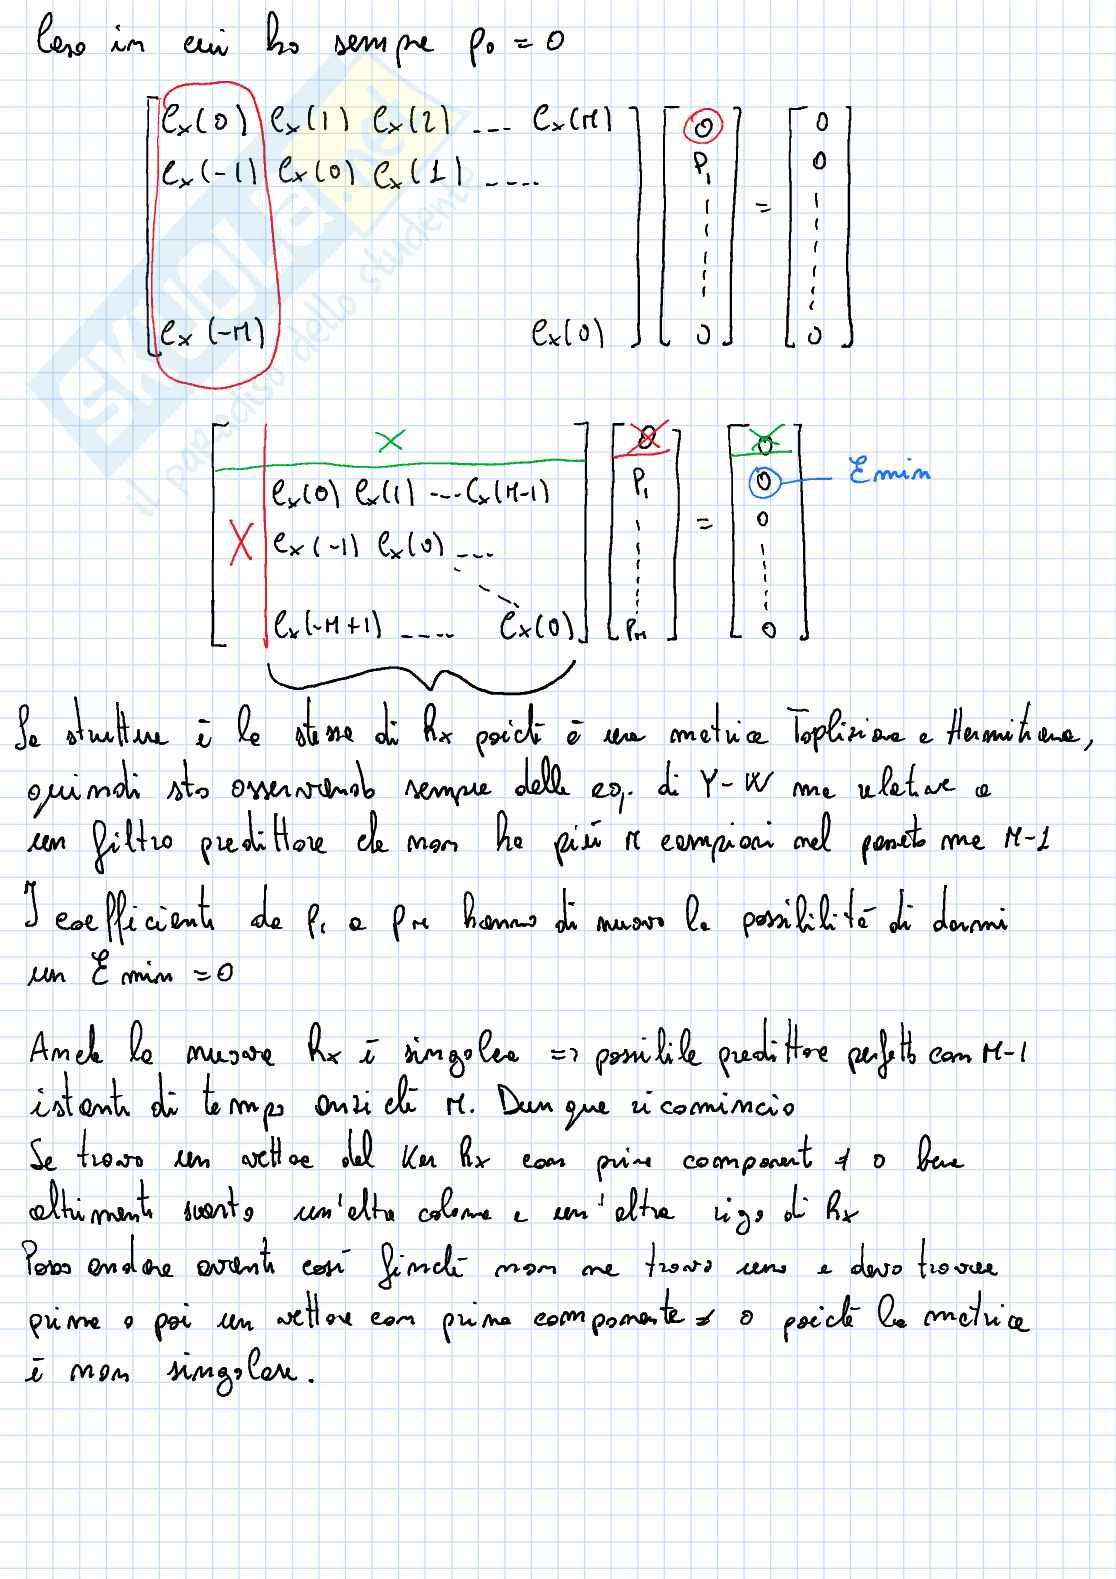 Caso in cui ho sempre p₀ = 0
Cx(0) Cx(1) Cx(2) ---- Cx(M) 0 0
Cx(-1) Cx(0) Cx(1) ----- P₁ = 0
Cx(-M) Cx(0) 0 0
X 0 0
Cx(0) Cx(1) --- Cx(M-1) P₁ 0 Emin
X Cx(-1) Cx(0) --- = 0
Cx(-M+1) ---- Cx(0) PM 0
La struttura è la stessa di Rx poiché è una matrice Topliziana e Hermitiana,
quindi sto osservando sempre delle eq. di Y-W ma relative a
un filtro predittore che non ha più M campioni nel passato ma M-1
I coefficienti da P₁ a PM hanno di nuovo la possibilità di darmi
un Emin = 0
Anche la nuova Rx è singolare => possibile predittore perfetto con M-1
istanti di tempo anziché M. Dunque ricomincio
Se trovo un vettore del Ker Rx con prima component ≠ 0 bene
altrimenti scarto un'altra colonna e un'altra riga di Rx
Posso andare avanti così finché non ne trovo uno e devo trovare
prima o poi un vettore con prima componente ≠ 0 poiché la matrice
è non singolare.
SKUOLA.net
il paradiso dello studente